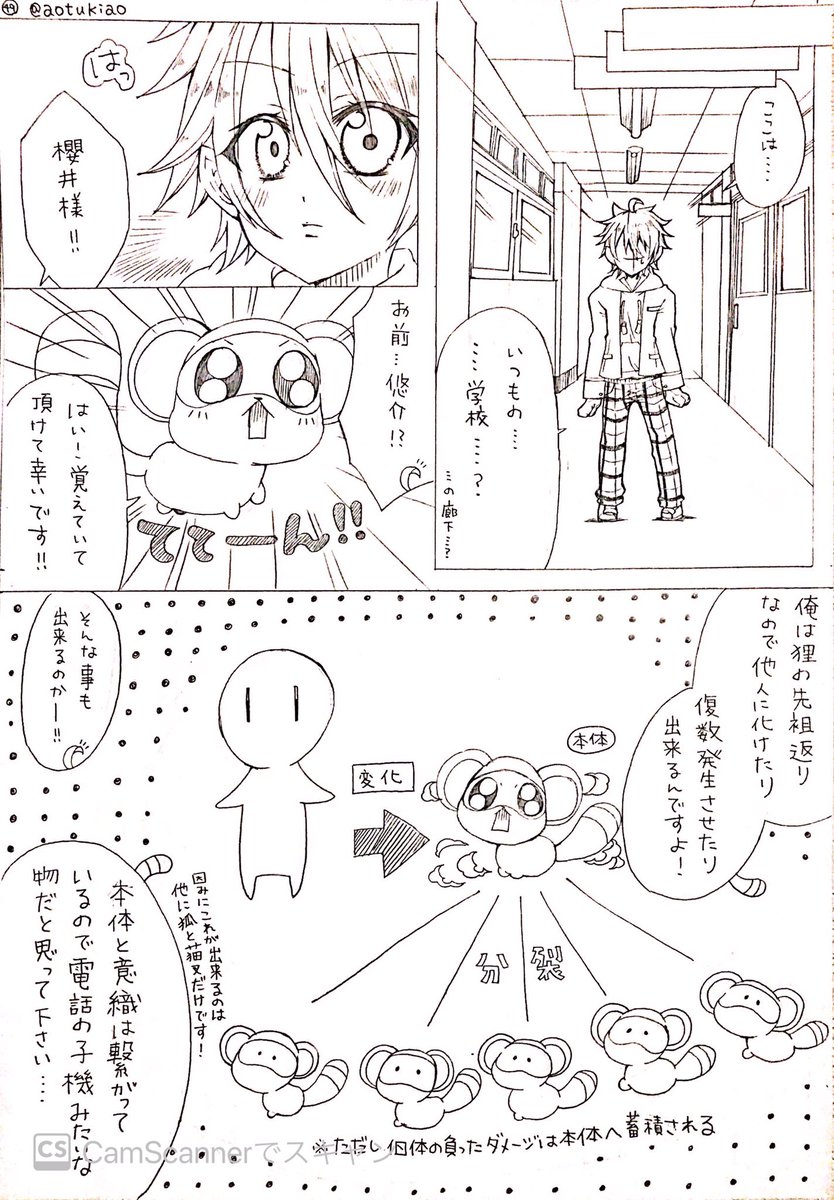 44 @aotukiao
ここは‥‥
いつもの‥‥
‥‥学校‥‥?
ミの廊下…?
はっ
櫻井様!!
お前…悠介!?
はいー!覚えていて
頂けて幸いです!!
ててーん!!
俺は狸の先祖返り
なので他人に化けたり
復数発生させたり
出来るんですよ!
そんな事も
出来るのかー!!
変化
本体
分裂
因みにこれが出来るのは
他に狐と猫又だけです!
本体と意織は繋がって
いるので電話の子機みたいな
物だと思って下さい‥‥
※ただし個体の負ったダメージは本体へ蓄積される
CS CamScannerでスキャン